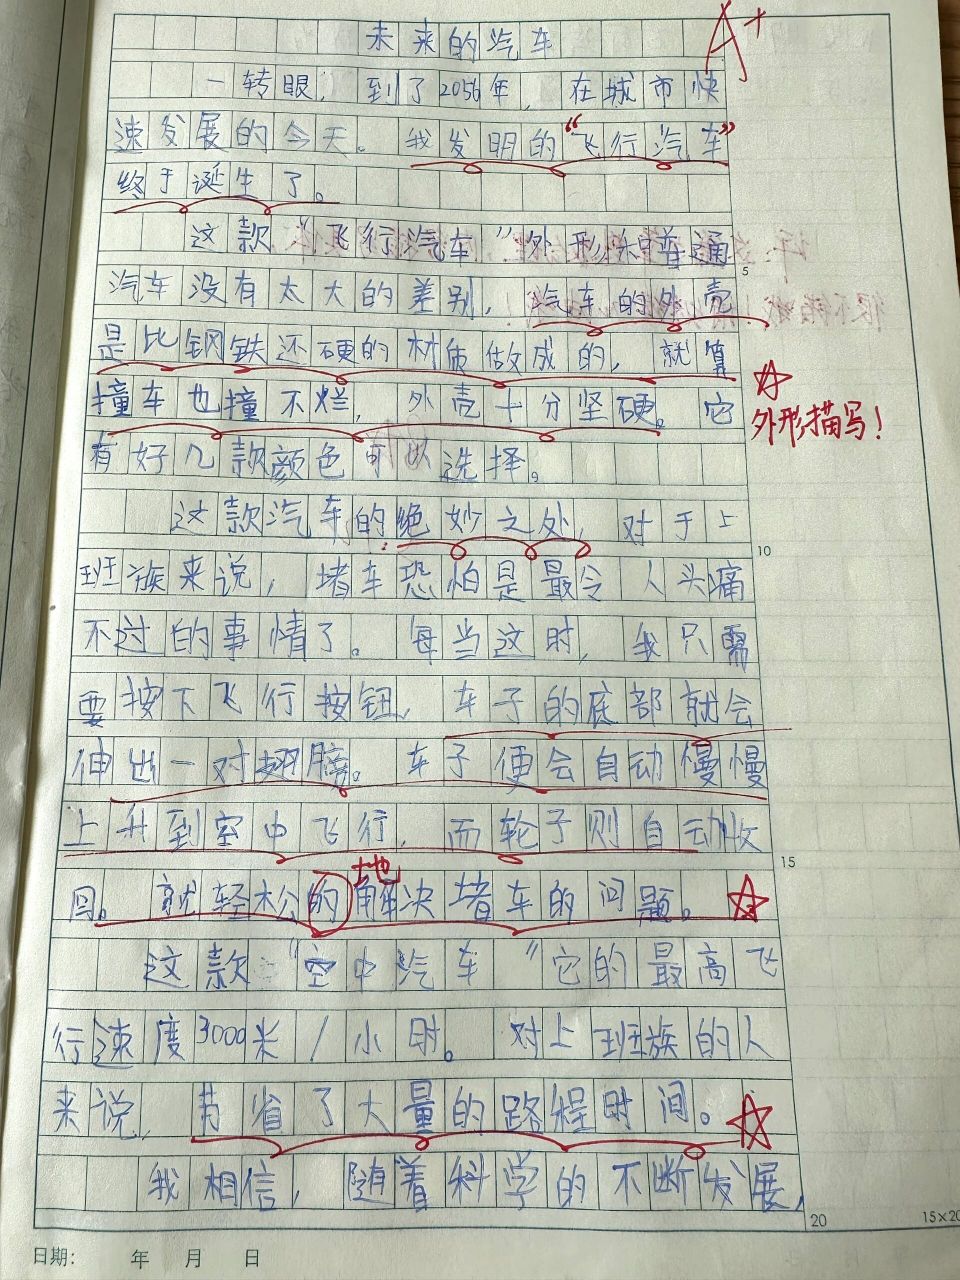 未来的汽车
A+
一转眼，到了2056年，在城市快
速发展的今天。我发明的“飞行汽车”
终于诞生了。
这款“飞行汽车”外形和普通
汽车没有太大的差别，汽车的外壳
5
是比钢铁还硬的材质做成的，就算
撞车也撞不烂，外壳十分坚硬。它
外形描写！
有好几款颜色可以选择。
这款汽车的绝妙之处，对于上
10
班族来说，堵车恐怕是最令人头痛
不过的事情了。每当这时，我只需
要按下飞行按钮，车子的底部就会
伸出一对翅膀。车子便会自动慢慢
上升到空中飞行，而轮子则自动收
15
回。就轻松的解决堵车的问题。
地
这款“空中汽车”它的最高飞
行速度3000米/小时。对上班族的人
来说，节省了大量的路程时间。
我相信，随着科学的不断发展，
20
15×20
日期： 年 月 日